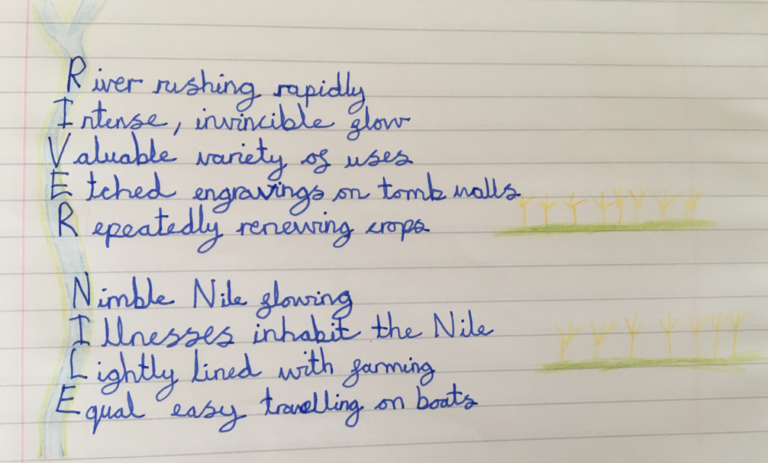 River rushing rapidly
Intense, invincible glow
Valuable variety of uses
Etched engravings on tomb walls
Repeatedly renewing crops
Nimble Nile glowing
Illnesses inhabit the Nile
Lightly lined with farming
Equal easy travelling on boats